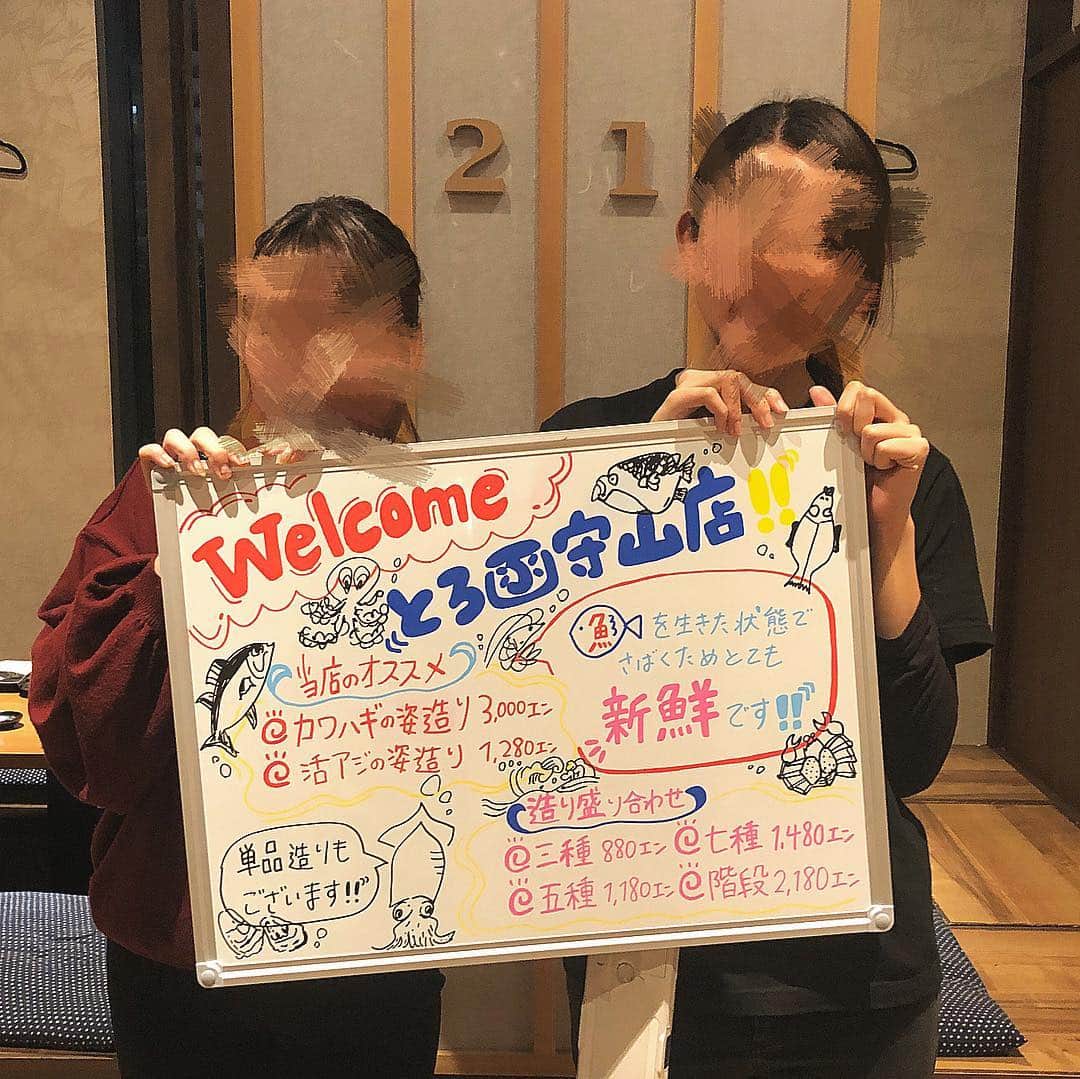 2 1
Welcome
とろ函守山店!!
当店のオススメ
カワハギの姿造り 3,000エン
活アジの姿造り 1,280エン
鮮を生きた状態で
さばくためとても
新鮮です!!
単品造りも
ございます!!
造り盛り合わせ
三種 880エン
七種 1,480エン
五種 1,180エン
階段 2,180エン